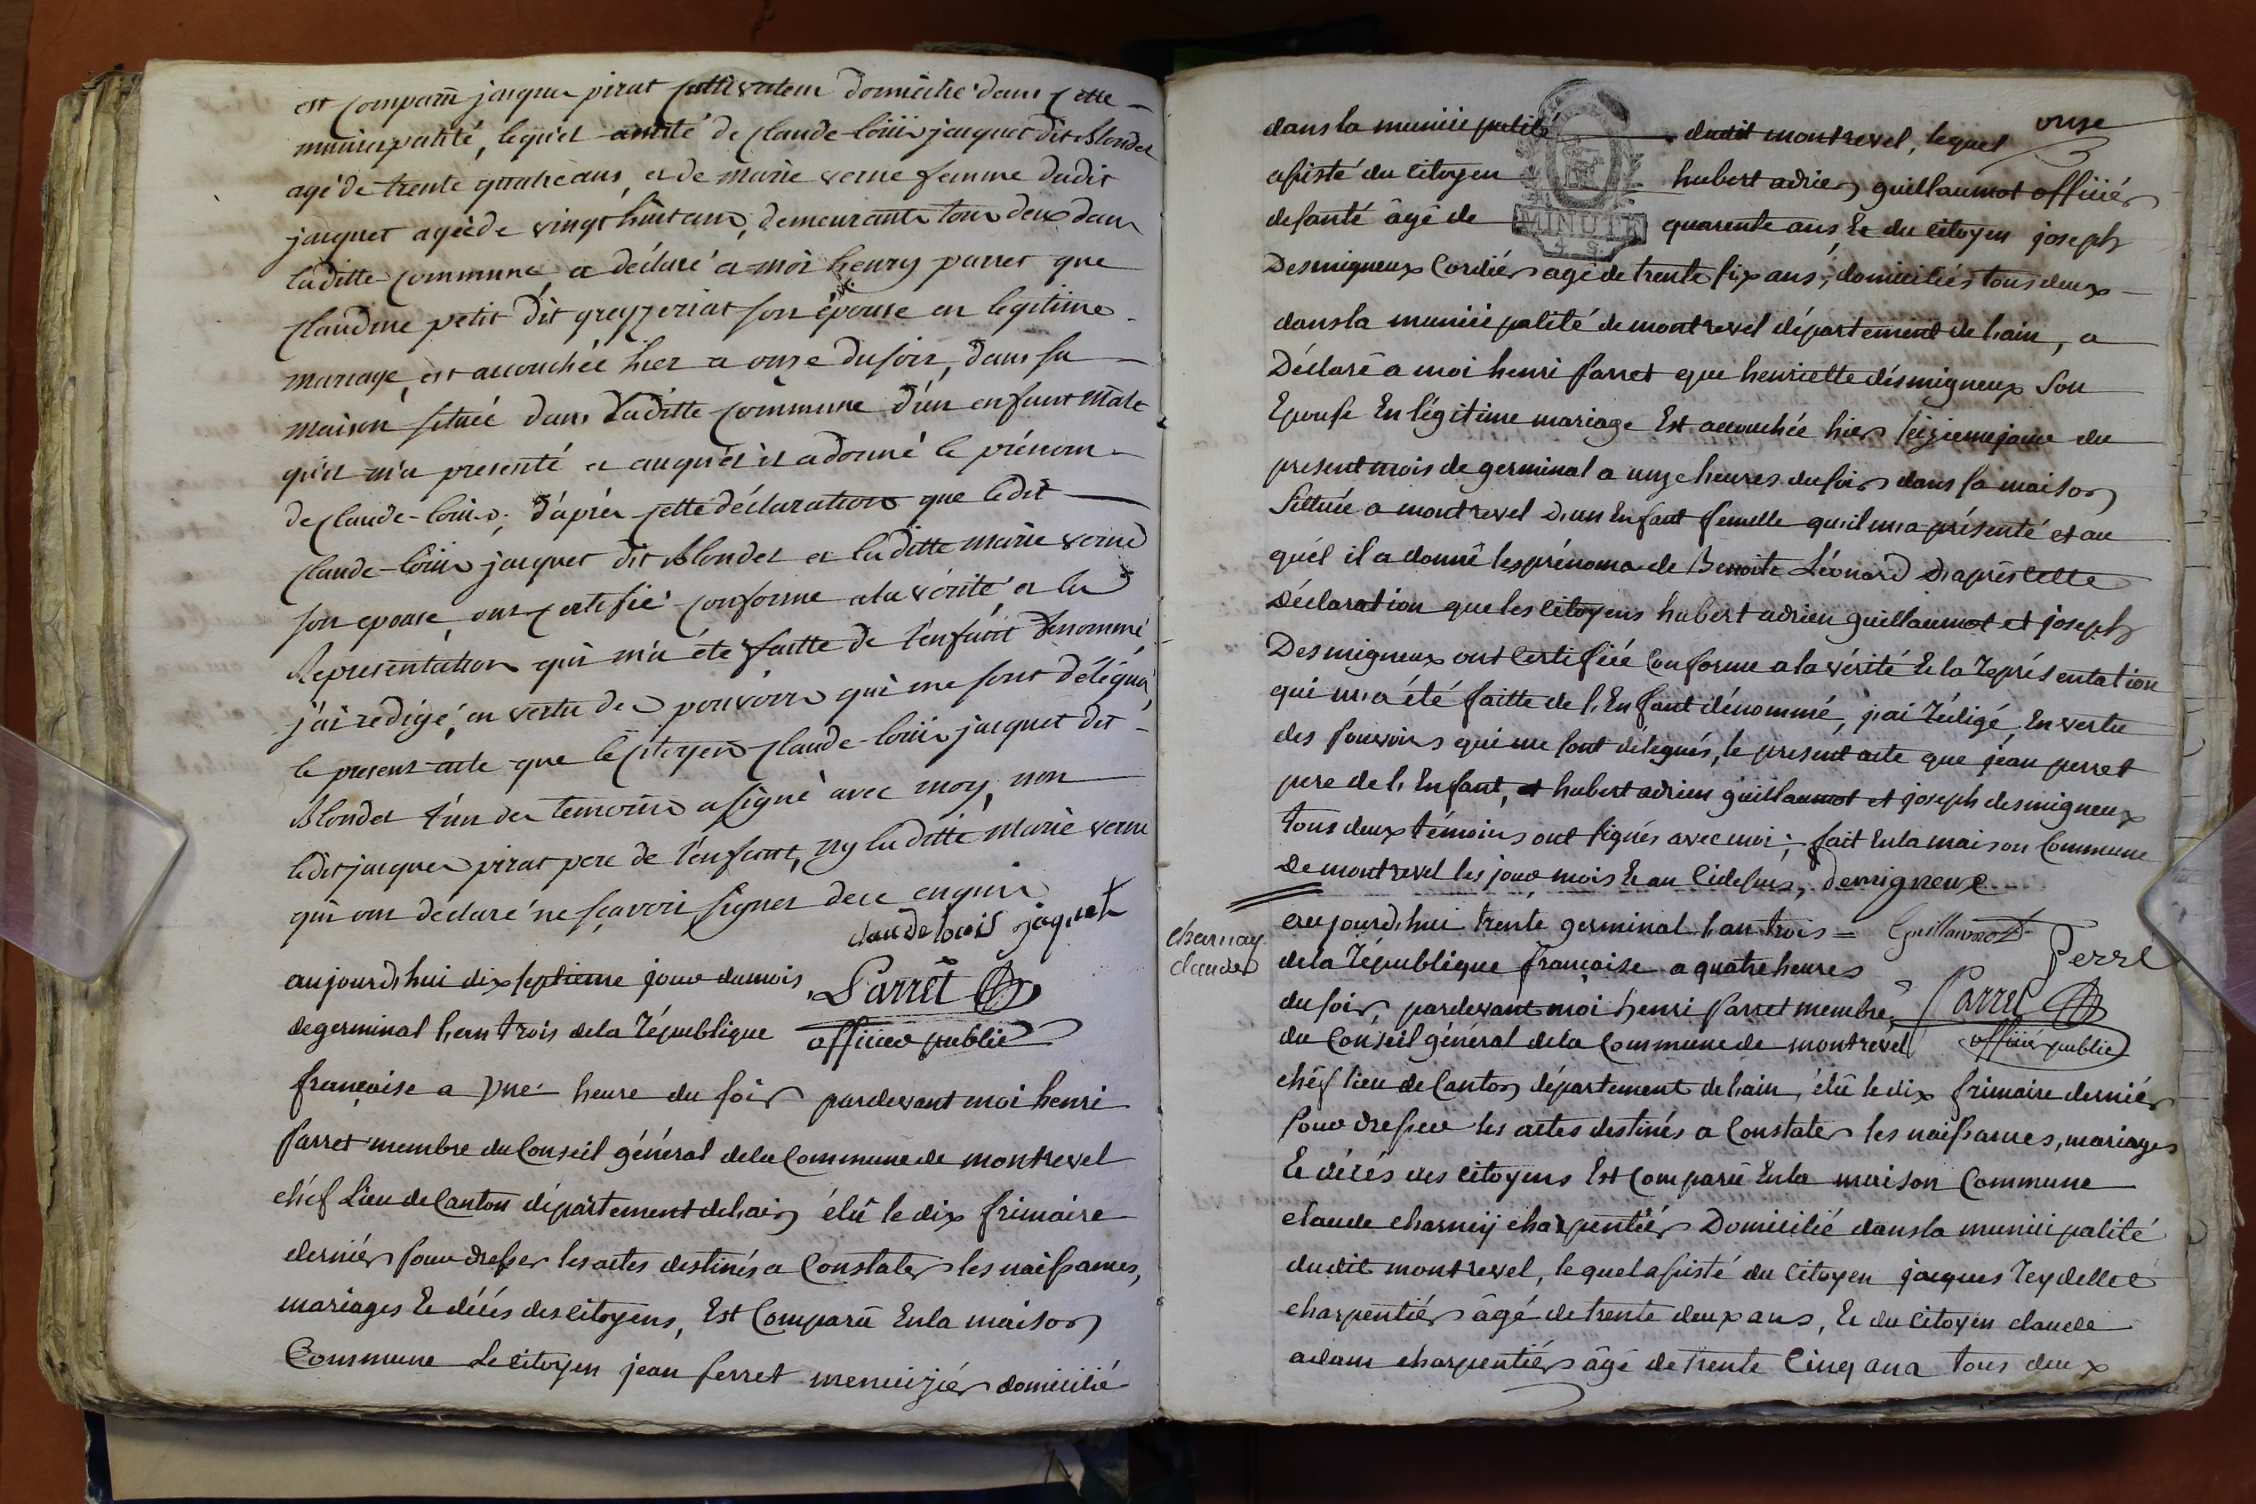 est comparu jacques pirat cultivateur domicilié dans cette
municipalité, lequel assisté de claude-loüis jacquet dit Blondet
agé de trente quatre ans, et de marie verne femme dudit
jacquet agée de vingt huit ans, demeurants tous deux dans
laditte commune, a déclaré a moi henry parret que
claudine petit dit greyzeriat son épouse en legitime
mariage, est accouchée hier a onze du soir, dans sa
maison située dans laditte commune d'un enfant mâle
qu'il m'a presenté et auquel il a donné le prénom
de claude-loüis; d'après cette déclaration que ledit
claude-loüis jacquet dit Blondet et laditte marie verne
son epouse, ont certifié conforme a la vérité et la
Representation qui m'a été faitte de l'enfant denommé,
j'ai redigé, en vertu des pouvoirs qui me sont délégués,
le present acte que le citoyen claude-loüis jacquet dit
Blondet l'un des temoins a signé avec moy, non
ledit jacques pirat pere de l'enfant, ny laditte Marie verne
qui ont déclaré ne sçavoir signer de ce enquis
claude louis jaquet
aujourd'hui dix septieme jour du mois
Parret
de germinal l'an trois de la République
officier public
françoise a une heure du soir pardevant moi henri
parret membre du Conseil général de la Commune de montrevel
chéf Lieu de Canton département de l'ain élû le dix frimaire
derniér pour dresser les actes destinés a Constater les naissances,
mariages & décés des citoyens, Est Comparû En la maison
Commune Le citoyen jean perret menuizier domicilié
onze
dans la municipalité dudit montrevel, lequel
MINUTE
assisté du citoyen hubert adrien guillaumot officiér
de santé âgé de quarente ans, & du citoyen joseph
Desmigneux Cordiér agé de trente six ans, domiciliés tous deux
dans la municipalité de montrevel département de l'ain, a
Déclaré a moi henri parret que henriette désmigneux Son
Epouse En légitime mariage Est accouchée hier seizieme jour du
present mois de germinal a onze heures du soir dans sa maison
Sittuée a montrevel d'un Enfant femelle qu'il m'a présenté et au
quél il a donné les prénoms de Benoite Léonard d'après cette
Déclaration que les citoyens hubert adrien guillaumot et joseph
Desmigneux ont Certifiée Conforme a la vérité & la représentation
qui m'a été faitte de l'Enfant dénommé, j'ai rédigé, En vertu
des pouvoirs qui me sont délegués, le present acte que jéan perret
pere de l'Enfant, et hubert adrien guillaumot et joseph desmigneux
tous deux témoins ont signés avec moi; fait En la maison Commune
De montrevel les jour mois & an Cidessus, demigneux
aujourd'hui trente germinal l'an trois = Guillaumot
charnay
claude
Perret
de la République françoise a quatre heures
du soir, pardevant moi henri parret membre
Parret
du Conseil général de la Commune de montrevel
officier public
chéf lieu de Canton département de l'ain, élû le dix frimaire derniér
pour dresser les actes destinés a Constater les naissances, mariages
& décés des citoyens Est Comparû En la maison Commune
claude charnay charpentiér Domicilié dans la municipalité
dudit montrevel, lequel assisté du citoyen jacques reydellet
charpentiér âgé de trente deux ans, & du citoyen claude
adam charpentiér âgé de trente Cinq ans tous deux